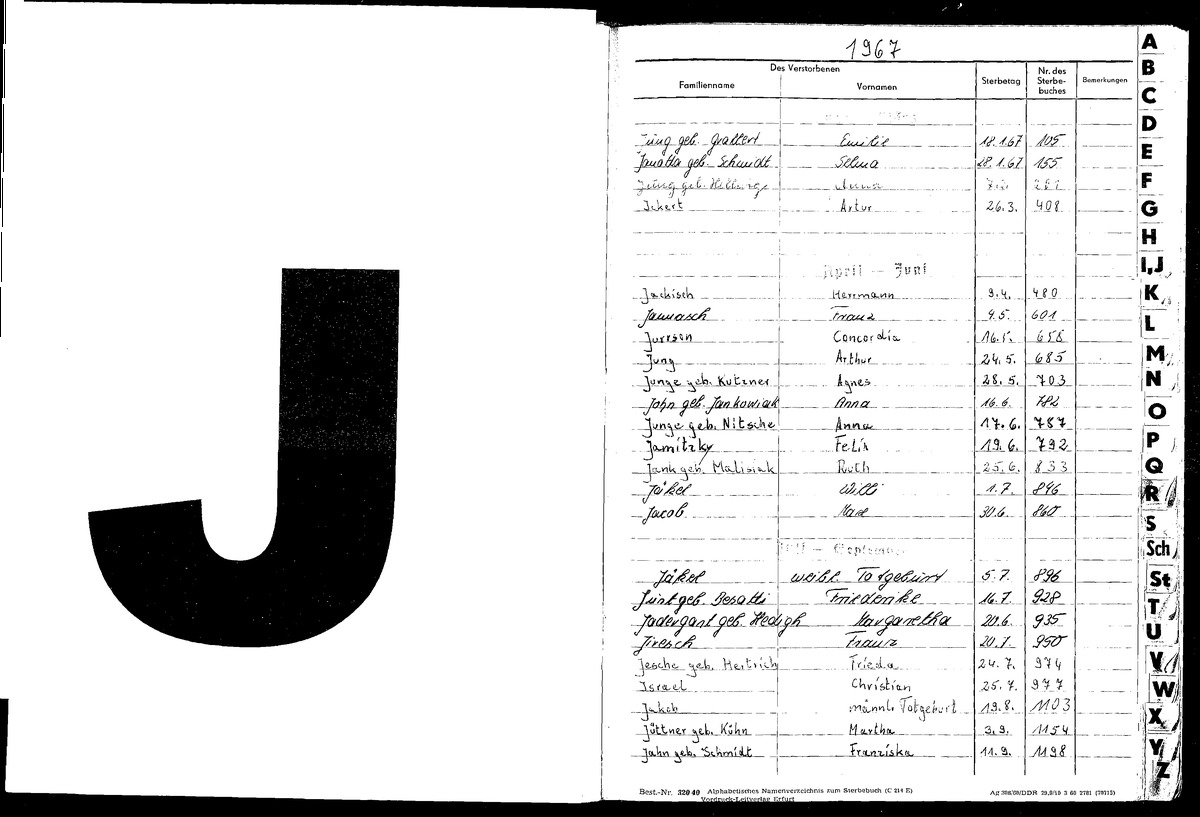 J
1967
Des Verstorbenen
Familienname Vornamen Sterbetag Nr. des Sterbe-buches Bemerkungen
Jung geb. Emilie 18.1.67 105
geb. Schmidt Selma 28.1.67 155
Jung geb. Anna
Ickert Artur 26.3. 408
April — Juni
Jackisch Herrmann 9.4. 480
Jannasch Franz 9.5. 601
Jurrson Concordia 16.5. 658
Jung Arthur 24.5. 685
Junge geb. Kutzner Agnes 28.5. 703
John geb. Jankowiak Anna 16.6. 782
Junge geb. Nitsche Anna 17.6. 787
Jamitzky Felix 19.6. 792
Jank geb. Malisiak Ruth 25.6. 833
Jäkel Willi 1.7. 846
Jacob Max 30.6. 860
Juli — September
Jäkel weibl. Totgeburt 5.7. 896
Just geb. Friederike 16.7. 928
Jadergast geb. Hedigh Margaretha 20.6. 935
Jiresch Franz 20.7. 950
Jesche geb. Hertrich Frieda 24.7. 974
Israel Christian 25.7. 977
Jakob männl. Totgeburt 19.8. 1103
Jüttner geb. Kühn Martha 3.9. 1154
Jahn geb. Schmidt Franziska 11.9. 1198
Best.-Nr. 320 40 Alphabetisches Namenverzeichnis zum Sterbebuch (C 214 E)
Vordruck-Leitverlag Erfurt
Ag 308/60/DDR
A
B
C
D
E
F
G
H
I,J
K
L
M
N
O
P
Q
R
S
Sch
St
T
U
V
W
X
Y
Z